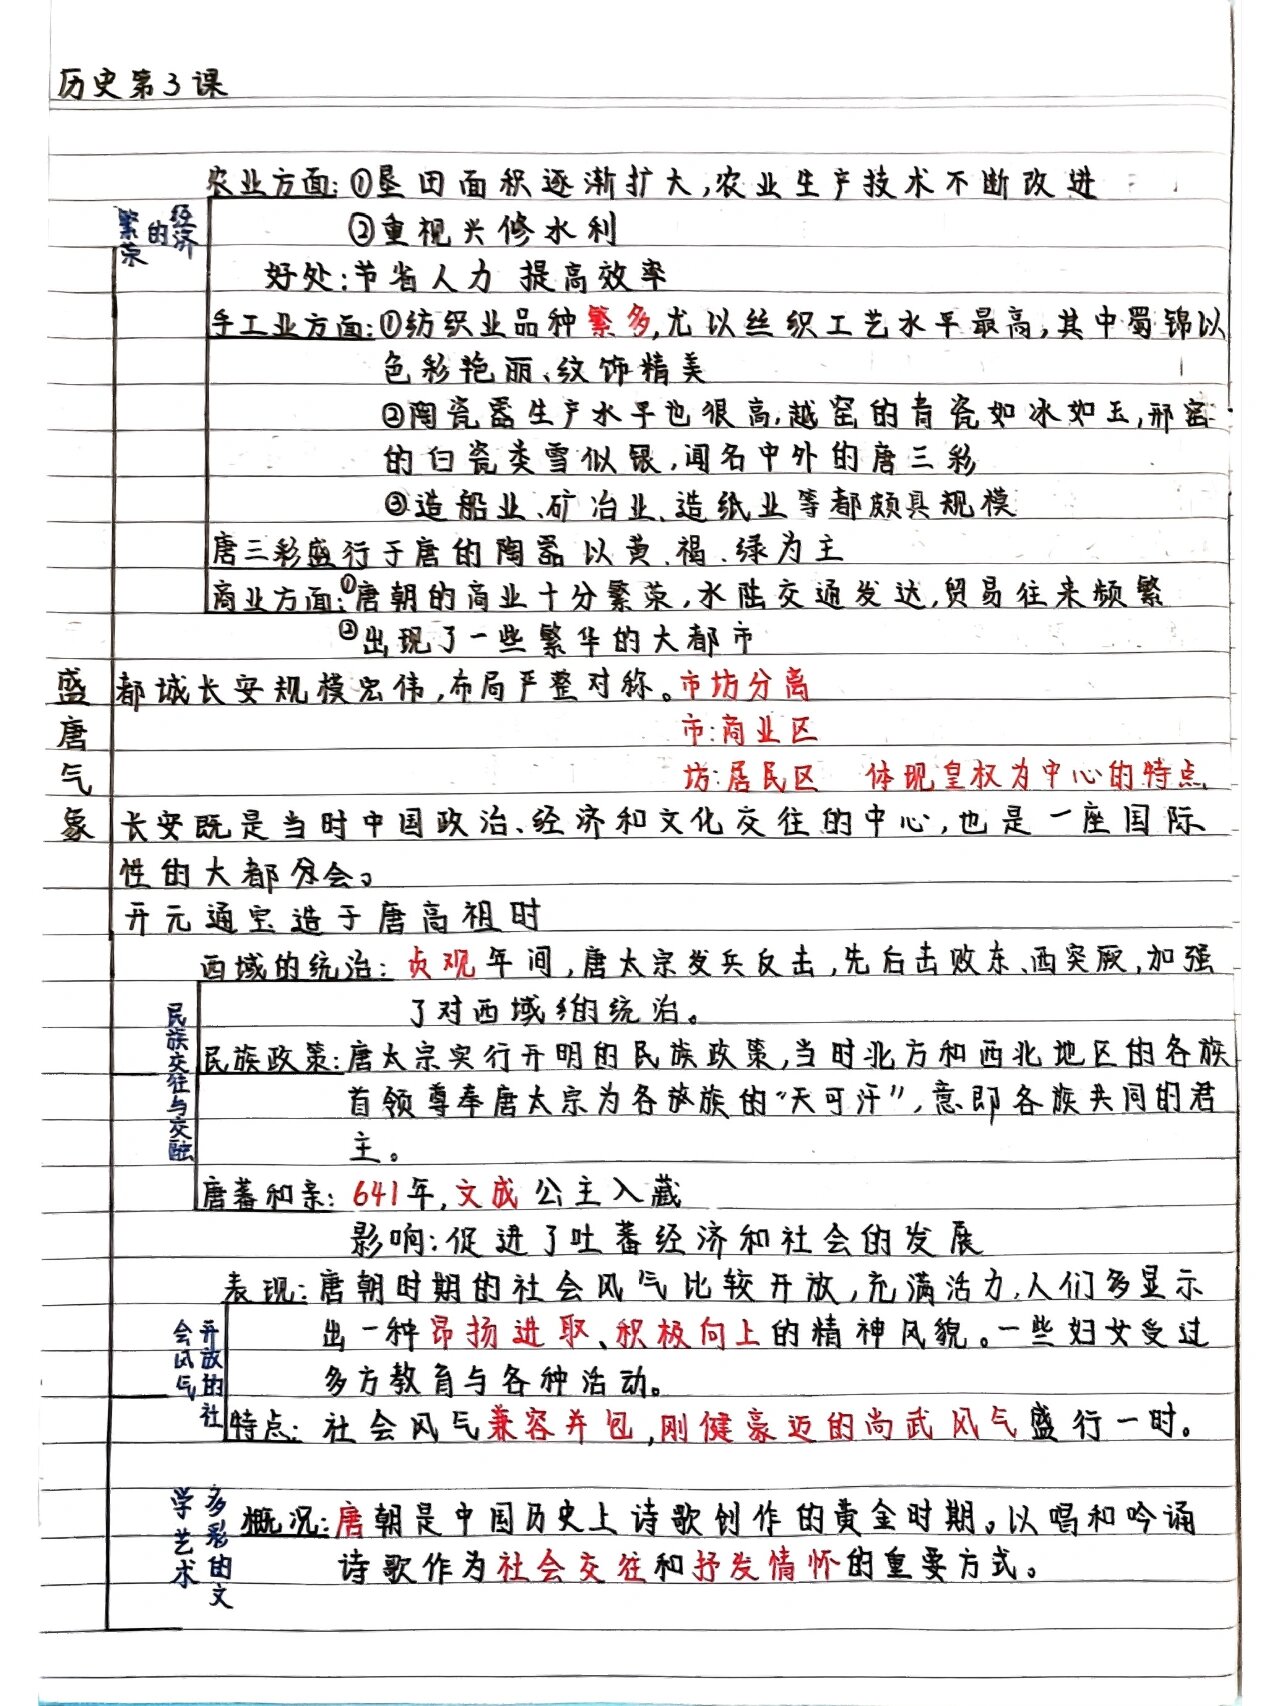 历史第3课
农业方面:①垦田面积逐渐扩大,农业生产技术不断改进
经济的繁荣
②重视兴修水利
好处:节省人力 提高效率
手工业方面:①纺织业品种繁多,尤以丝织工艺水平最高,其中蜀锦以
色彩艳丽、纹饰精美
②陶瓷器生产水平也很高,越窑的青瓷如冰如玉,邢窑
的白瓷类雪似银,闻名中外的唐三彩
③造船业、矿冶业、造纸业等都颇具规模
唐三彩盛行于唐的陶器以黄、褐、绿为主
商业方面:①唐朝的商业十分繁荣,水陆交通发达,贸易往来频繁
②出现了一些繁华的大都市
盛唐气象
都城长安规模宏伟,布局严整对称。市坊分离
市:商业区
坊:居民区 体现皇权为中心的特点
长安既是当时中国政治、经济和文化交往的中心,也是一座国际
性的大都会。
开元通宝造于唐高祖时
西域的统治:贞观年间,唐太宗发兵反击,先后击败东、西突厥,加强
了对西域的统治。
民族交往与交融
民族政策:唐太宗实行开明的民族政策,当时北方和西北地区的各族
首领尊奉唐太宗为各族的“天可汗”,意即各族共同的君
主。
唐蕃和亲:641年,文成公主入藏
影响:促进了吐蕃经济和社会的发展
表现:唐朝时期的社会风气比较开放,充满活力,人们多显示
开放的社会风气
出一种昂扬进取、积极向上的精神风貌。一些妇女受过
多方教育与各种活动。
特点:社会风气兼容并包,刚健豪迈的尚武风气盛行一时。
多彩的文学艺术
概况:唐朝是中国历史上诗歌创作的黄金时期。以唱和吟诵
诗歌作为社会交往和抒发情怀的重要方式。